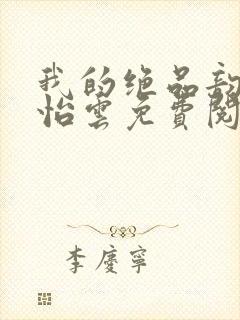 我的绝品
怡雲免費閱
李慶寧